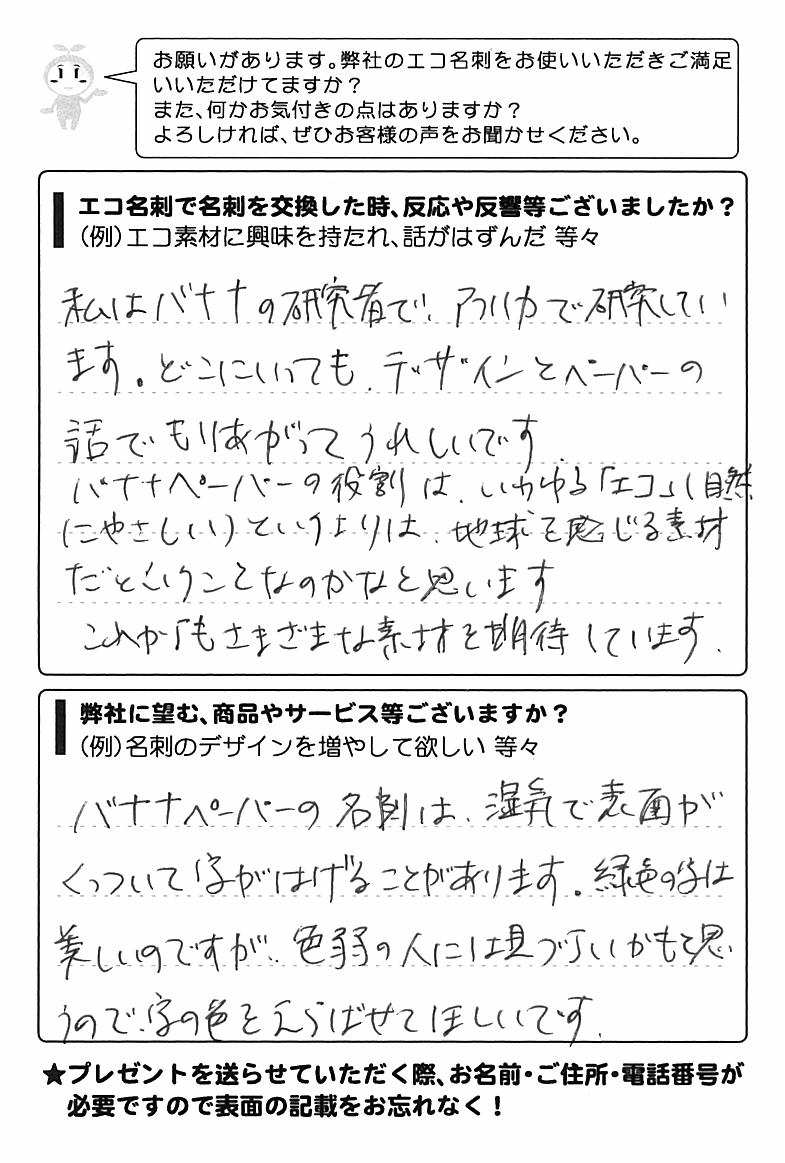 お願いがあります。弊社のエコ名刺をお使いいただきご満足
いいただけてますか?
また、何かお気付きの点はありますか?
よろしければ、ぜひお客様の声をお聞かせください。
エコ名刺で名刺を交換した時、反応や反響等ございましたか?
(例)エコ素材に興味を持たれ、話がはずんだ 等々
私はバナナの研究者で、アフリカで研究してい
ます。どこにいっても、デザインとペーパーの
話でもりあがってうれしいです。
バナナペーパーの役割は、いわゆる「エコ」(自然
にやさしい)というよりは、地球を感じる素材
だということなのかなと思います
これからもさまざまな素材を期待しています。
弊社に望む、商品やサービス等ございますか?
(例)名刺のデザインを増やして欲しい 等々
バナナペーパーの名刺は、湿気で表面が
くっついて字がはげることがあります。緑色の字は
美しいのですが、色弱の人には見づらいかもと思
うので、字の色をえらばせてほしいです。
★プレゼントを送らせていただく際、お名前・ご住所・電話番号が
必要ですので表面の記載をお忘れなく!